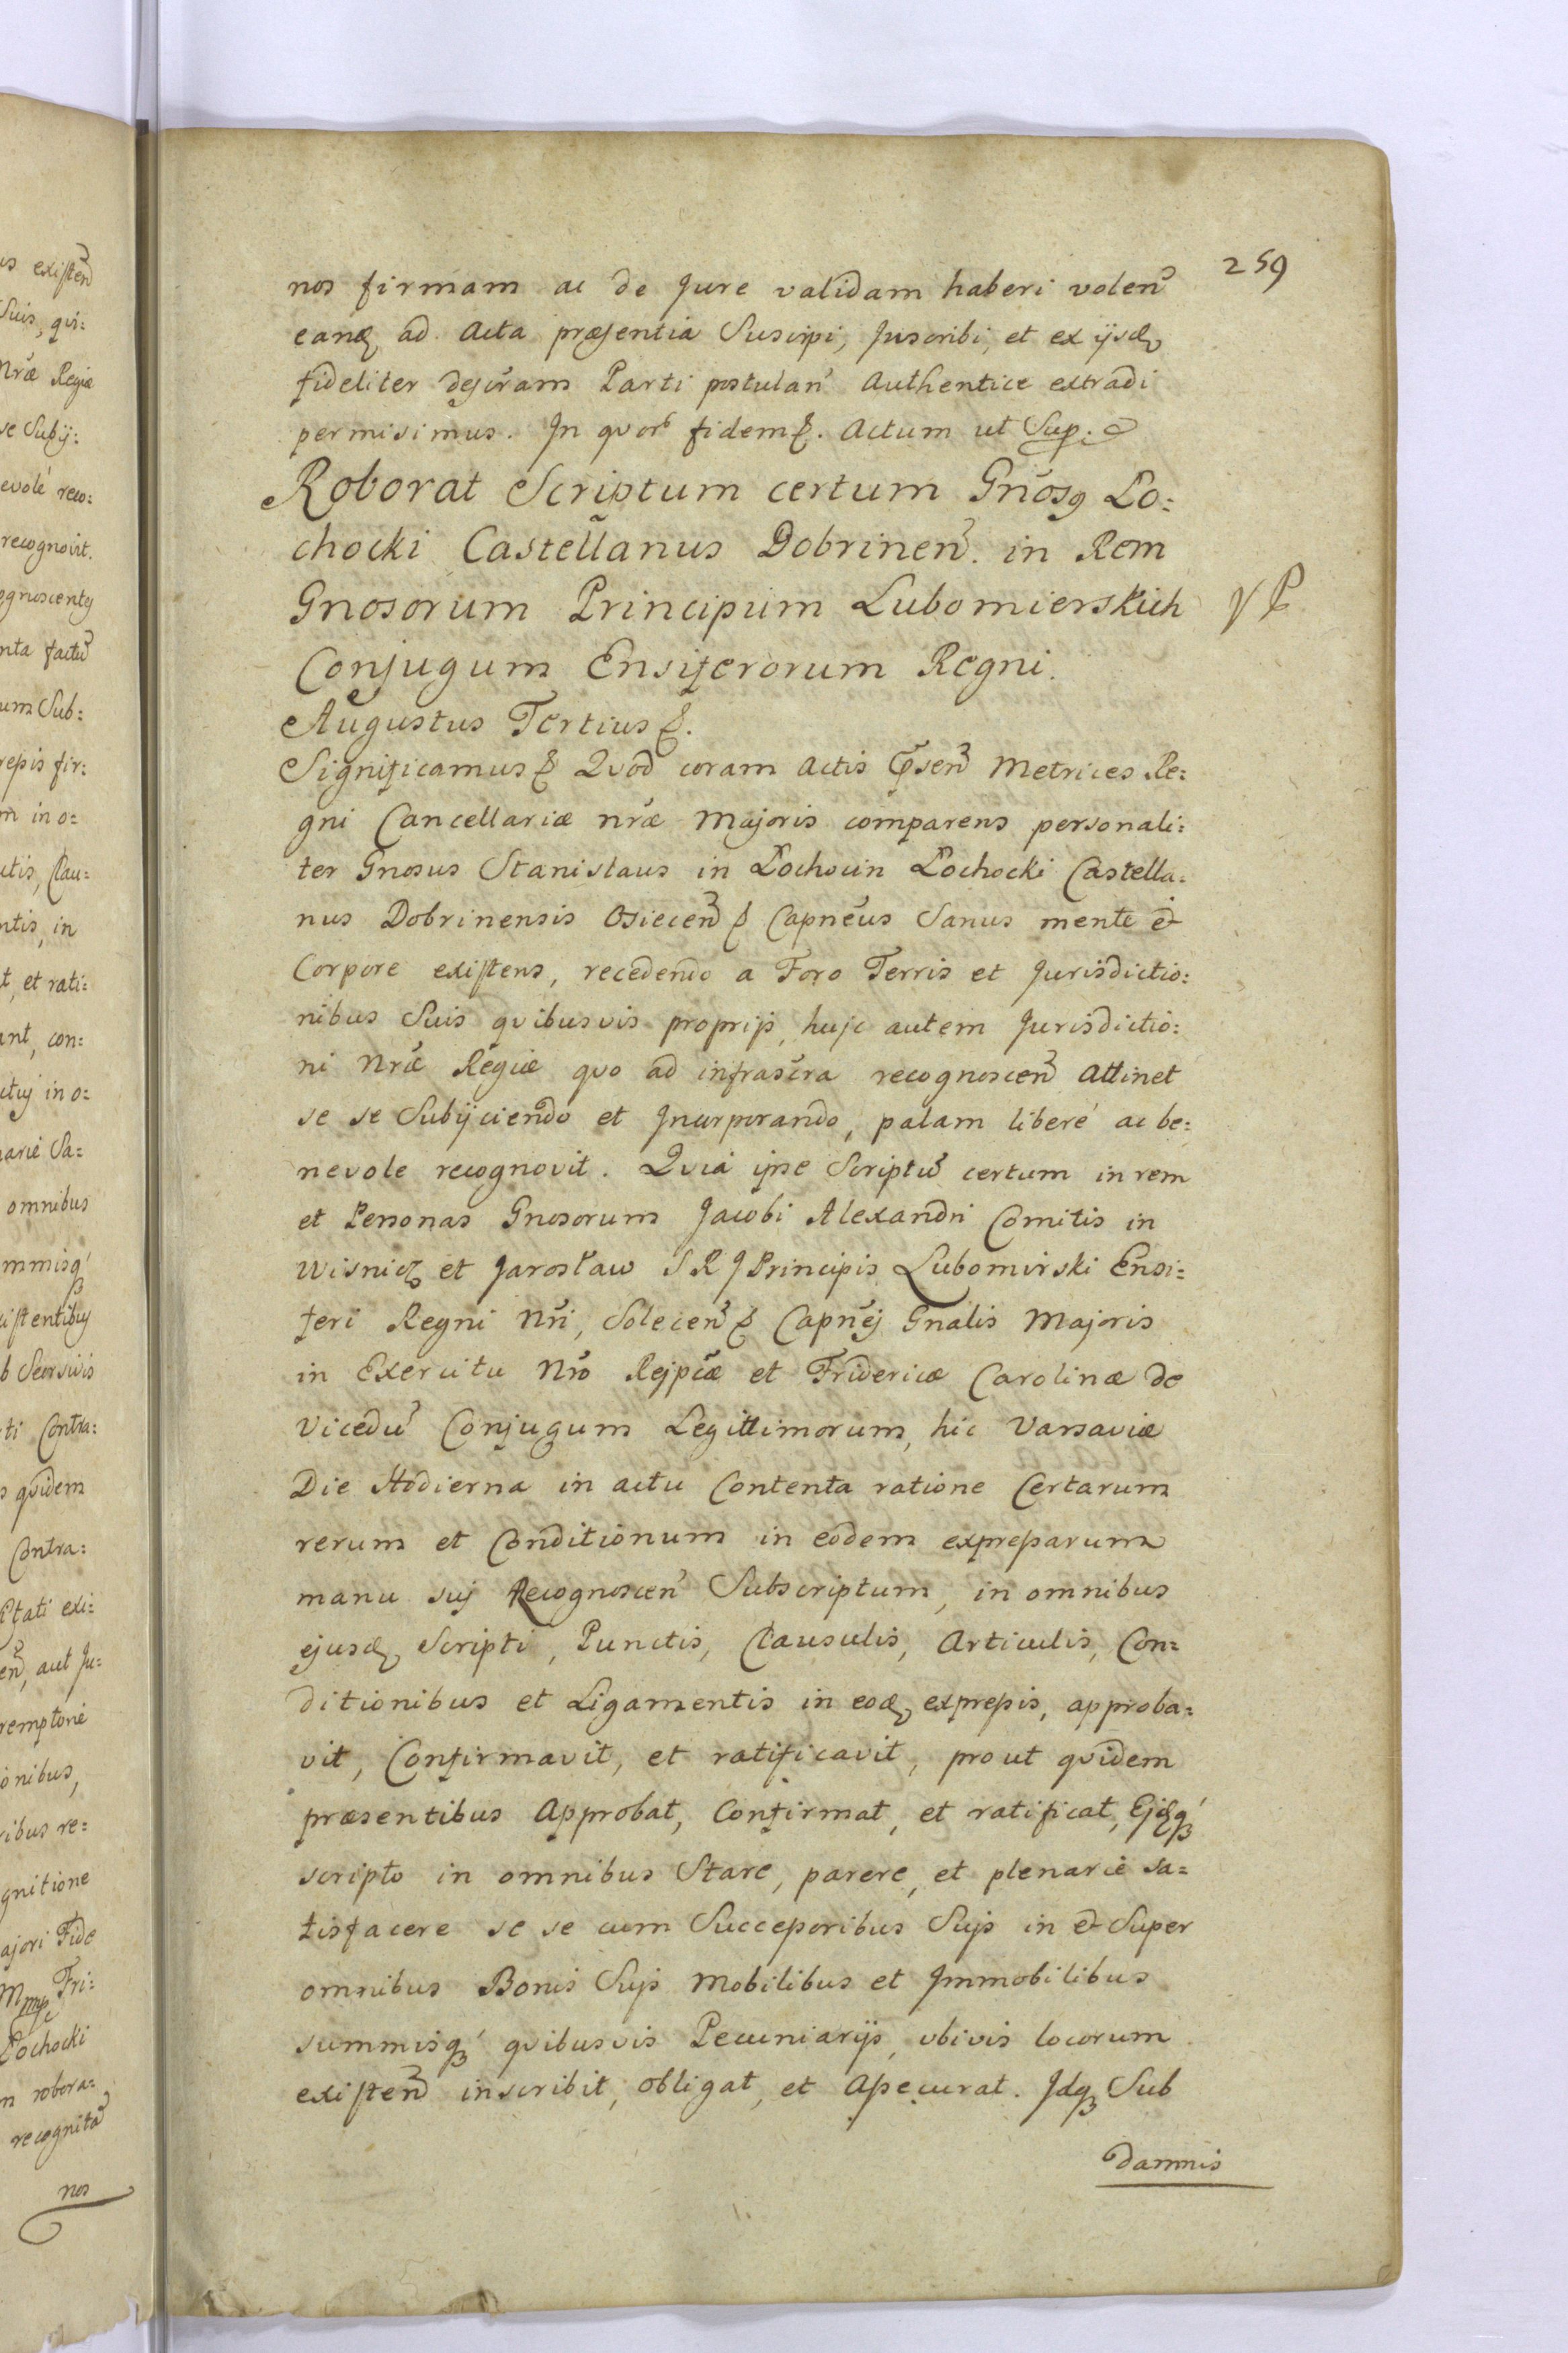 259
nos firmam ac de Jure validam haberi volen̄
eand ad Acta præsentia Suscipi, Inscribi, et ex ijsd
fideliter descr̄am Parti postulan̄ Authentice extradi
permisimus. In quor fidem &. Actum ut Sup:
Roborat Scriptum certum Gn̄osq Ło=
chocki Castellanus Dobrinen̄. in Rem
Gnosorum Principum Lubomierskich
Conjugum Ensiferorum Regni.
VP
Augustus Tertius &.
Significamus & Qvod coram Actis p̄sen̄ Metrices Re=
gni Cancellariæ nr̄æ Majoris comparens personali=
ter Gnosus Stanislaus in Łochocin Łochocki Castella=
nus Dobrinensis Osiecen̄ & Capn̄eus Sanus mente et
Corpore existens, recedendo a Foro Terris et Jurisdictio=
nibus Suis qvibusvis proprijs, hujc autem Jurisdictio=
ni Nr̄æ Regiæ qvo ad infrascr̄a recognoscen̄ Attinet
se se Subijciendo et Incorporando, palam liberè ac be=
nevole recognovit. Qvia ipse Scriptū certum in rem
et Personas Gnosorum Jacobi Alexandri Comitis in
Wisnicz et Jarosław S R J Principis Lubomirski Ensi=
feri Regni Nr̄i, Solecen̄ & Capn̄ej Gnalis Majoris
in Exercitu Nr̄o Rejpcæ et Fridericæ Carolinæ de
Vicedū Conjugum Legittimorum, hic Varsaviæ
Die Hodierna in actu Contenta ratione Certarum
rerum et Conditionum in eodem expressarum
manu suj Recognoscen̄ Subscriptum, in omnibus
ejusd Scripti, Punctis, Clausulis, Articulis, Con=
ditionibus et Ligamentis in eod expressis, approba=
vit, Confirmavit, et ratificavit, prout qvidem
præsentibus Approbat, Confirmat, et ratificat, Ejdq́
scripto in omnibus Stare, parere, et plenariè sa=
tisfacere se se cum Successoribus Sujs in et Super
omnibus Bonis Sujs Mobilibus et Immobilibus
summisq́ qvibusvis Pecuniarijs, ubivis locorum
existen̄ inscribit, obligat, et Assecurat. Idq Sub
damnis